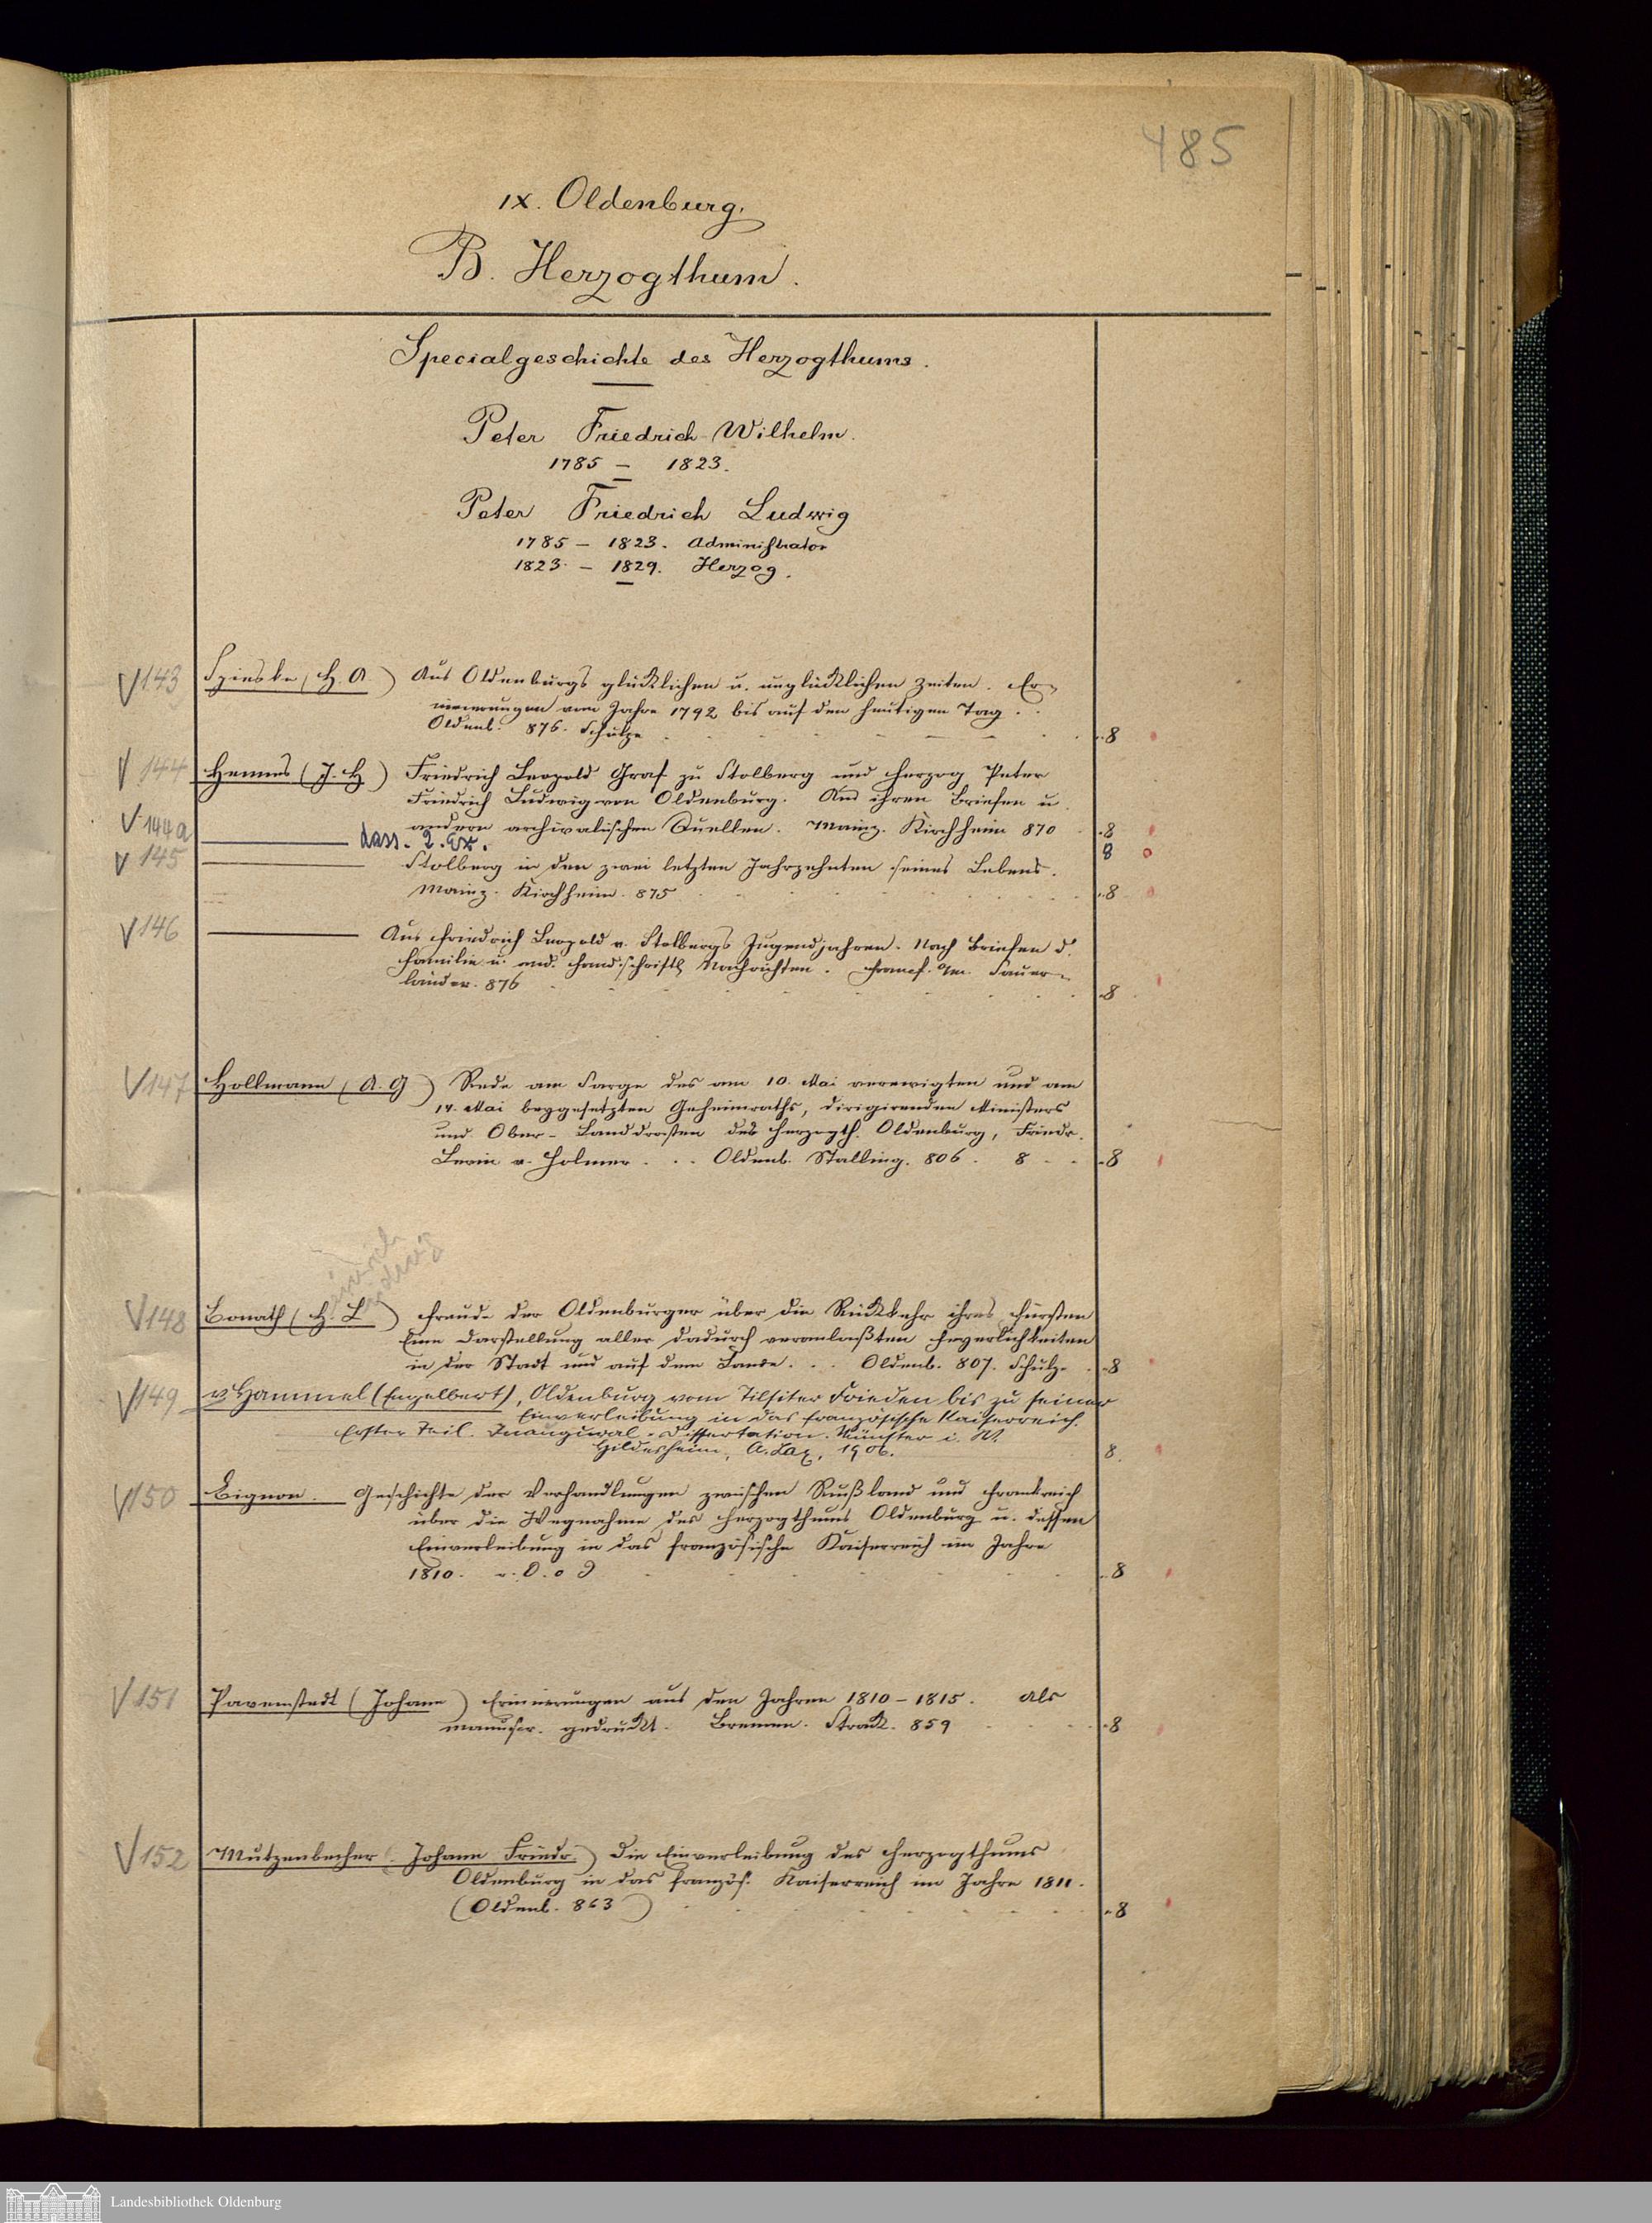 485
IX. Oldenburg.
B. Herzogthum.
Specialgeschichte des Herzogthums.
Peter Friedrich Wilhelm.
1785 – 1823.
Peter Friedrich Ludwig
1785 – 1823. Administrator
1823. – 1829. Herzog.
V 143 (H. A.) Aus Oldenburgs glücklichen u. unglücklichen Zeiten. Er-
innerungen vom Jahre 1792 bis auf den heutigen Tag . .
Oldenb. 876. Schulze 8
V 144 Hennes (J. H) Friedrich Leopold Graf zu Stolberg und Herzog Peter
Friedrich Ludwig von Oldenburg. Aus ihren Briefen u.
andern archivalischen Quellen. Mainz. Kirchheim 870 . 8
V 144a dass. 2. Ex. 8
V 145 Stolberg in den zwei letzten Jahrzehnten seines Lebens.
Mainz. Kirchheim. 875 8
V 146 Aus Friedrich Leopold v. Stolbergs Jugendjahren. Nach Briefen d.
Familie u. and. handschriftl Nachrichten. Francf. a/m. Sauer-
länder. 876 8
V 147 Hollmann (A. G) Rede am Sarge des am 10. Mai verewigten und am
14. Mai beygesetzten Geheimraths, dirigirenden Ministers
und Ober-Landdrosten des Herzogth. Oldenburg, Friedr.
Levin v. Holmer . . . Oldenb. Stalling. 806. 8 . . 8
Heinrich
Ludwig
V 148 Bonath (H. L) Freude der Oldenburger über die Rückkehr ihres Fürsten
Eine Darstellung aller dadurch veranlaßten Feyerlichkeiten
in der Stadt und auf dem Lande. . . Oldenb. 807. Schulze . 8
V 149 v Hammel (Engelbert), Oldenburg vom Tilsiter Frieden bis zu seiner
Einverleibung in das französische Kaiserreich.
Erster Teil. Inaugural-Dissertation. Münster i. W.
Hildesheim, A. Lax, 1906. 8.
V 150 Bignon. Geschichte der Verhandlungen zwischen Rußland und Frankreich
über die Wegnahme des Herzogthums Oldenburg u. dessen
Einverleibung in das französische Kaiserreich im Jahre
1810. O. o J 8
V 151 Pavenstedt (Johann) Erinnerungen aus den Jahren 1810–1815. Als
manuscr. gedruckt. Bremen. Strack. 859 8
V 152 Mutzenbecher (Johann Friedr.) Die Einverleibung des Herzogthums
Oldenburg in das französ. Kaiserreich im Jahre 1811.
(Oldenb. 863) 8
Landesbibliothek Oldenburg